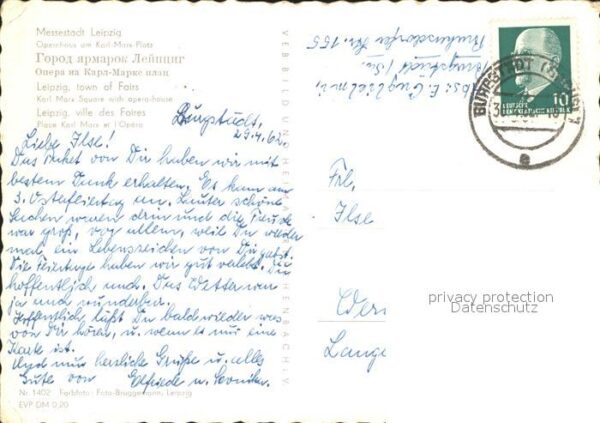 Messestadt Leipzig
Opernhaus am Karl-Marx-Platz
Город ярмарок Лейпциг
Опера на Карл-Маркс плац
Leipzig, town of Fairs
Karl Marx Square with opera-house
Leipzig, ville des Foires
Place Karl Marx et l'Opéra
Burgstädt,
29.4.62.
Liebe Ilse!
Das Paket von Dir haben wir mit
bestem Dank erhalten. Es kam am
3. Osterfeiertag an. Lauter schöne
Sachen waren drin und die Freude
war groß, vor allem, weil Du wieder
mal ein Lebenszeichen von Dir gabst.
Die Feiertage haben wir gut verlebt. Du
hoffentlich auch. Das Wetter war
ja auch wunderbar.
Hoffentlich läßt Du bald wieder was
von Dir hören, u. wenn es nur eine
Karte ist.
Und nun herzliche Grüße u. alles
Gute von Elfriede u.
Nr. 1402 Farbfoto: Foto-Brüggemann, Leipzig
EVP DM 0,20
VEB BILD UND HEIMAT REICHENBACH i. V.
Abs: E.
Burgstädt / Sa.
Nr. 155
BURGSTÄDT
a
10
DEUTSCHE
DEMOKRATISCHE REPUBLIK
Frl.
Ilse
Wer
Lange
privacy protection
Datenschutz